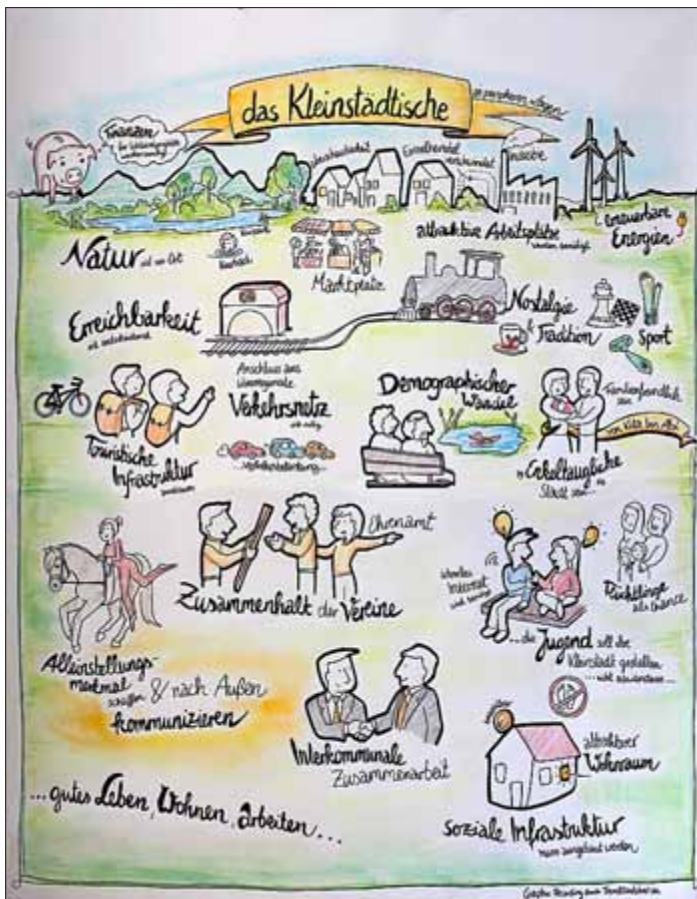 das Kleinstädtische
Finanzen
Einzelhandel
Industrie
Natur
Marktplätze
attraktive Arbeitsplätze
werden benötigt
erneuerbare
Energien
Erreichbarkeit
Nostalgie
& Tradition
Sport
Anschluss ans
überregionale
Verkehrsnetz
Demographischer
Wandel
Familienfreundlich
sein
von Kita bis Alt
Touristische
Infrastruktur
...Verkehrsbelastung...
"Enkeltaugliche
Stadt sein..."
Ehrenamt
Zusammenhalt der Vereine
schnelles
Internet
wird benötigt
Flüchtlinge
als Chance
...die Jugend soll die
Kleinstadt gestalten
...nicht abwandern...
Alleinstellungs-
merkmal
schaffen & nach Außen
kommunizieren
Interkommunale
Zusammenarbeit
attraktiver
Wohnraum
...gutes Leben, Wohnen, arbeiten...
soziale Infrastruktur
muss ausgebaut werden